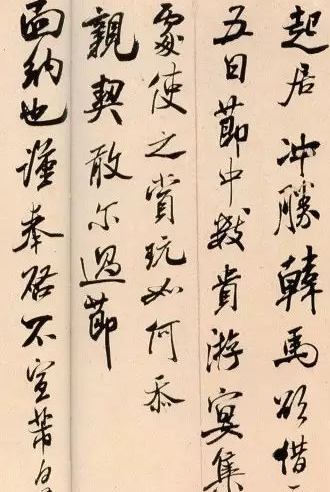 起居冲勝韓馬欲借
五日節中數貴游宴集
處使之賞玩如何忝
親契敢尓過節
面納也謹奉啓不宣芾白